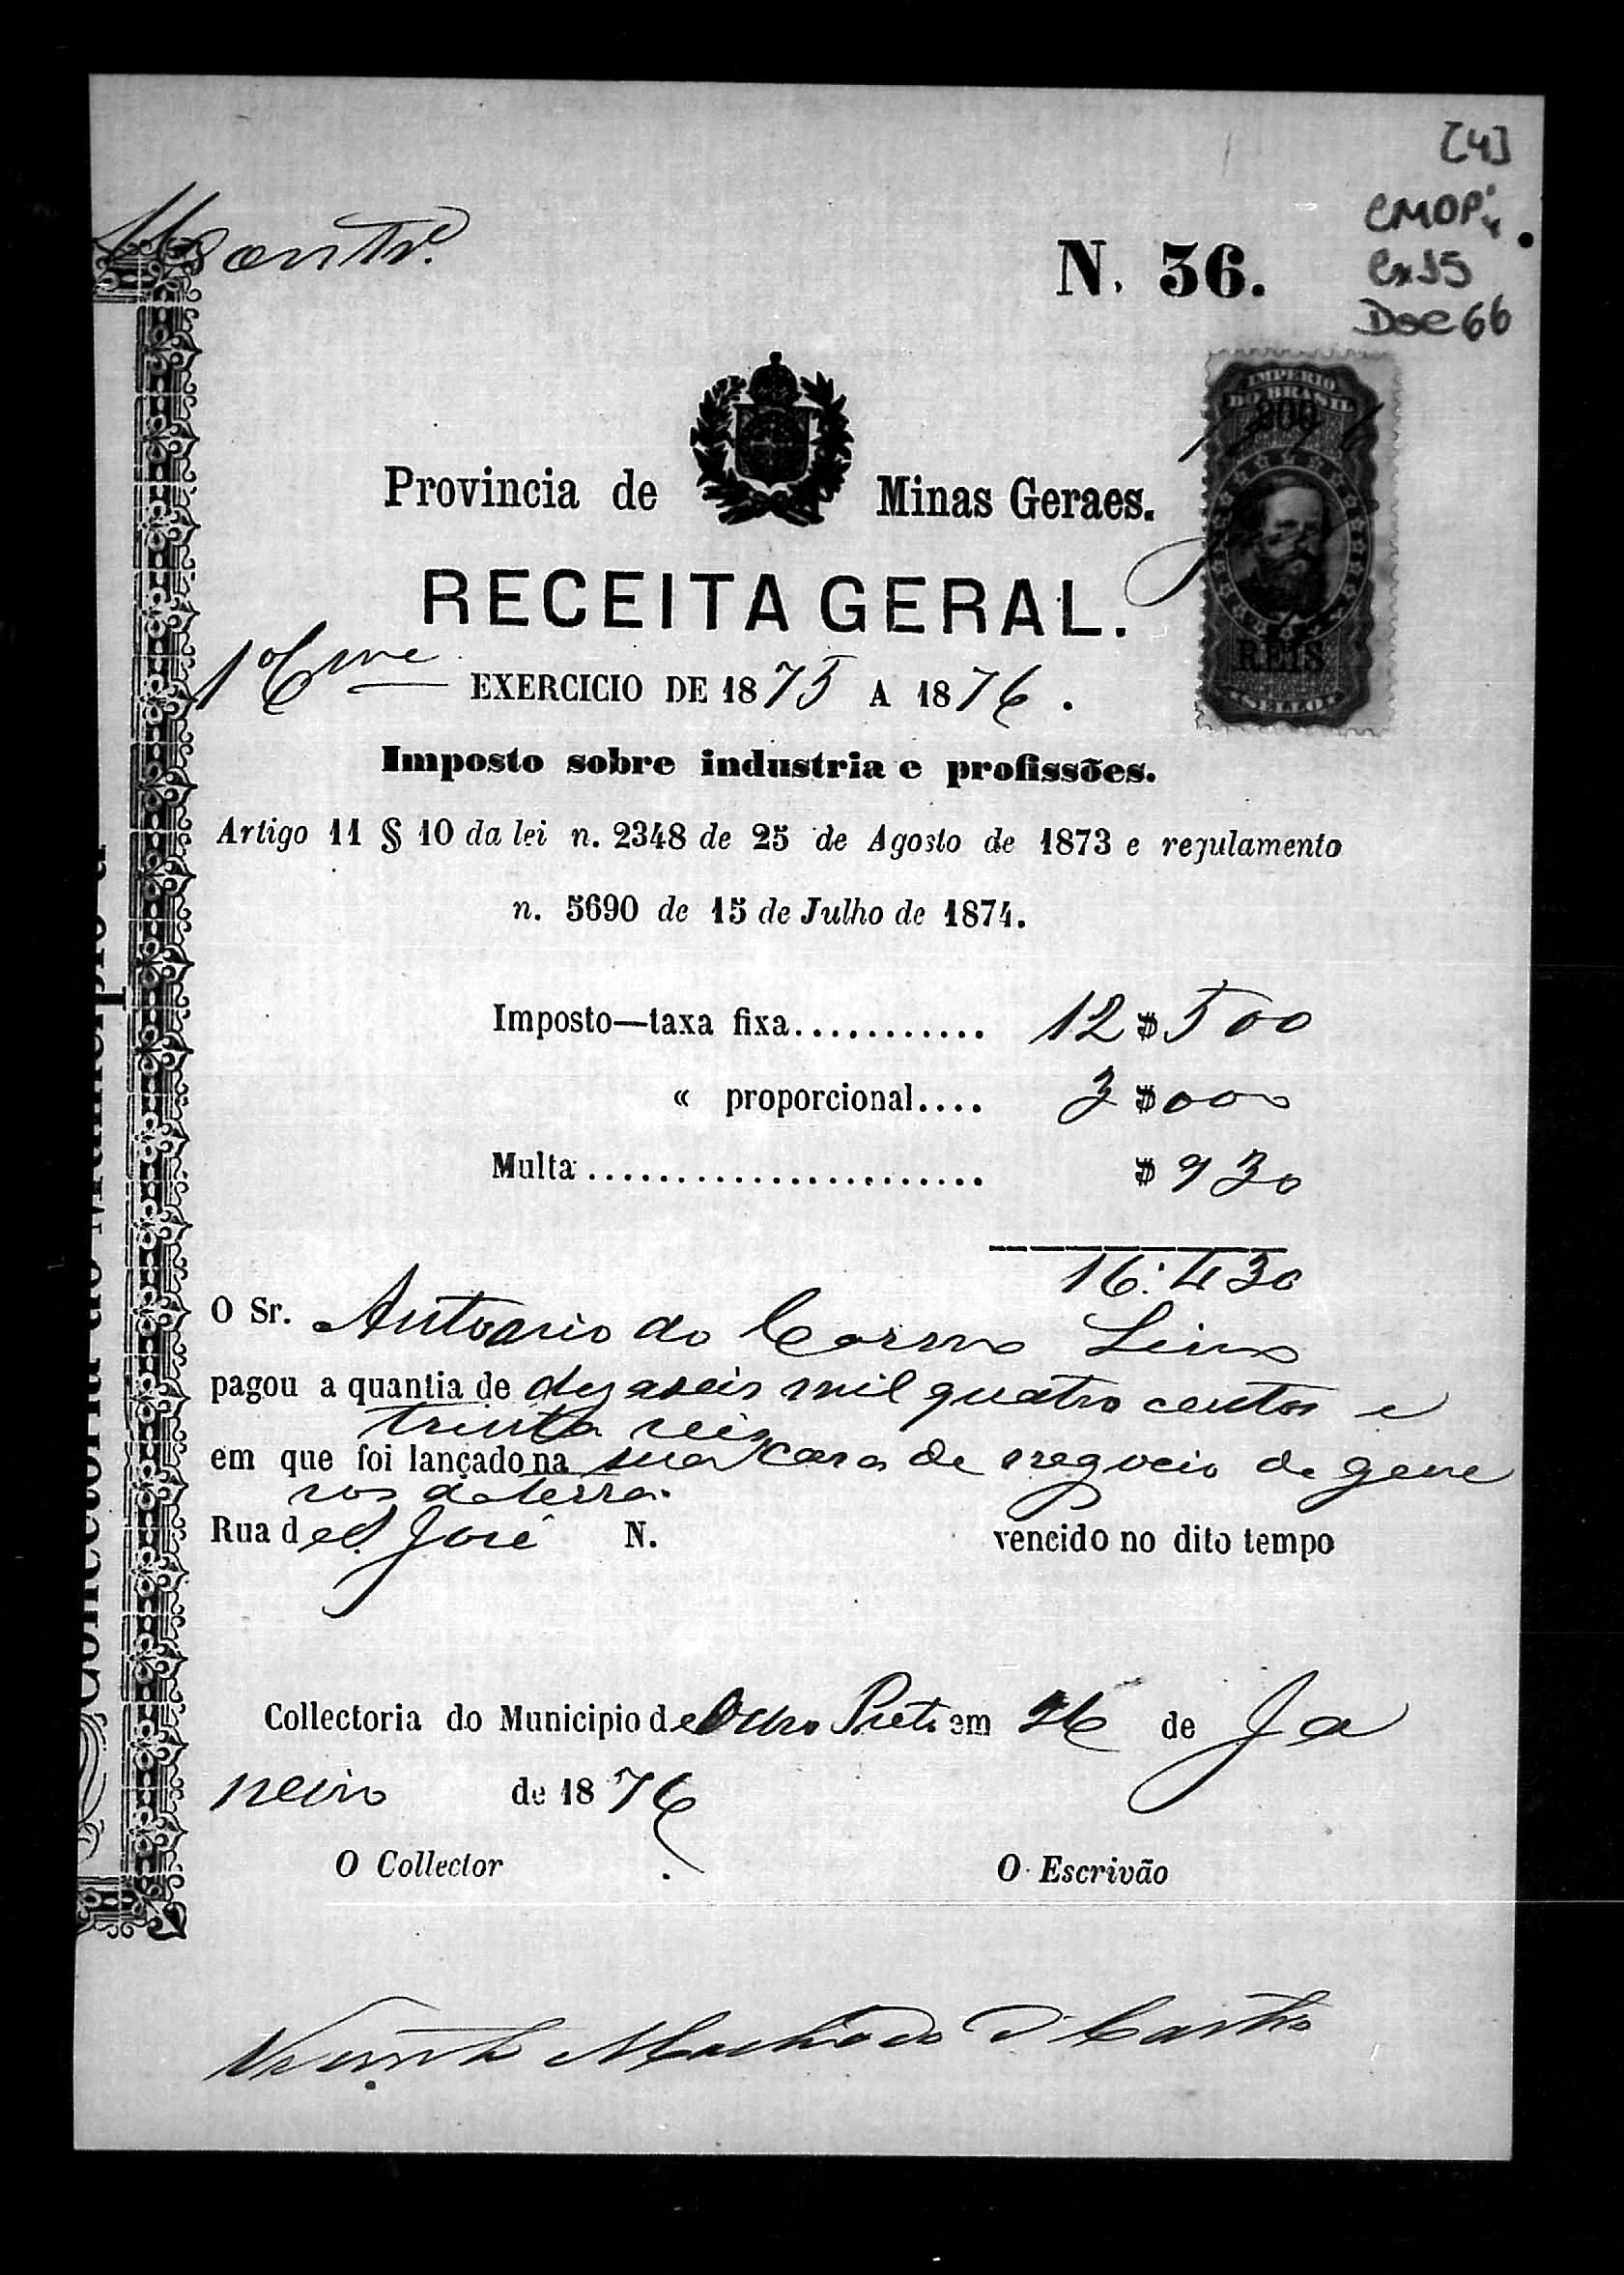 [4]
CMOP
Cx 15
Doc 66
N. 36.
IMPERIO
DO BRASIL
200
REIS
SELLO
Provincia de Minas Geraes.
RECEITA GERAL.
EXERCICIO DE 1875 A 1876.
Imposto sobre industria e profissões.
Artigo 11 § 10 da lei n. 2348 de 25 de Agosto de 1873 e regulamento
n. 5690 de 15 de Julho de 1874.
Imposto—taxa fixa........... 12$500
« proporcional.... 3$000
Multa....................... $930
16:430
O Sr. Antonio do Carmo Lima
pagou a quantia de dezaseis mil quatro centos e
trinta reis
em que foi lançado na sua casa de negocio de gene
ros da terra.
Rua de S. José N. vencido no dito tempo
Collectoria do Municipio de Ouro Preto em 26 de Ja
neiro de 1876
O Collector O Escrivão
Vicente Machado de Castro